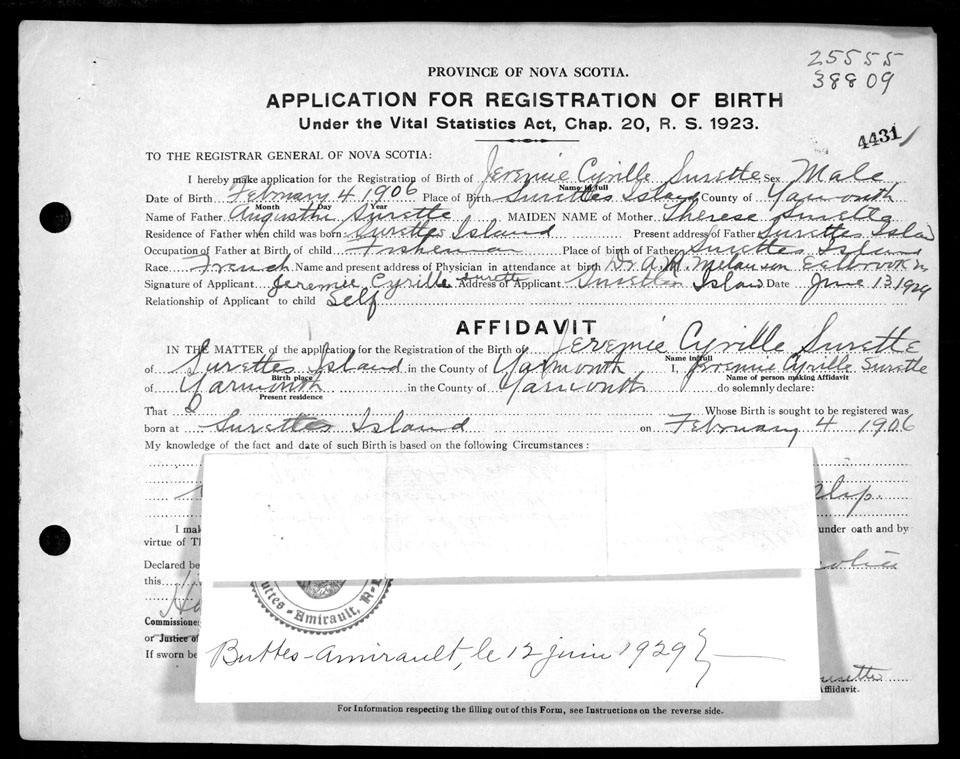 25555
38809
PROVINCE OF NOVA SCOTIA.
APPLICATION FOR REGISTRATION OF BIRTH
Under the Vital Statistics Act, Chap. 20, R. S. 1923.
4431
TO THE REGISTRAR GENERAL OF NOVA SCOTIA:
I hereby make application for the Registration of Birth of Jeremie Cyrille Surette Sex Male
Name in full
Date of Birth February 4 1906 Place of Birth Surettes Island County of Yarmouth
Month Day Year
Name of Father Augustin Surette MAIDEN NAME of Mother Therese Surette
Residence of Father when child was born Surettes Island Present address of Father Surettes Islan
Occupation of Father at Birth of child Fisherman Place of birth of Father Surettes Island
Race French Name and present address of Physician in attendance at birth Dr. A. M. Melanson Eelbrook
Signature of Applicant Jeremie Cyrille Surette Address of Applicant Surettes Island Date June 13 1929
Relationship of Applicant to child Self
AFFIDAVIT
IN THE MATTER of the application for the Registration of the Birth of Jeremie Cyrille Surette
Name in full
of Surettes Island in the County of Yarmouth I, Jeremie Cyrille Surette
Birth place Name of person making Affidavit
of Yarmouth in the County of Yarmouth do solemnly declare:
Present residence
That I Whose Birth is sought to be registered was
born at Surettes Island on February 4 1906
My knowledge of the fact and date of such Birth is based on the following Circumstances:
slip.
I mak under oath and by
virtue of Th
Declared be
this
Commissione
or Justice of
If sworn be
uttes-Amirault, N-
Buttes-Amirault, le 12 juin 1929
urette
Affidavit.
For Information respecting the filling out of this Form, see Instructions on the reverse side.